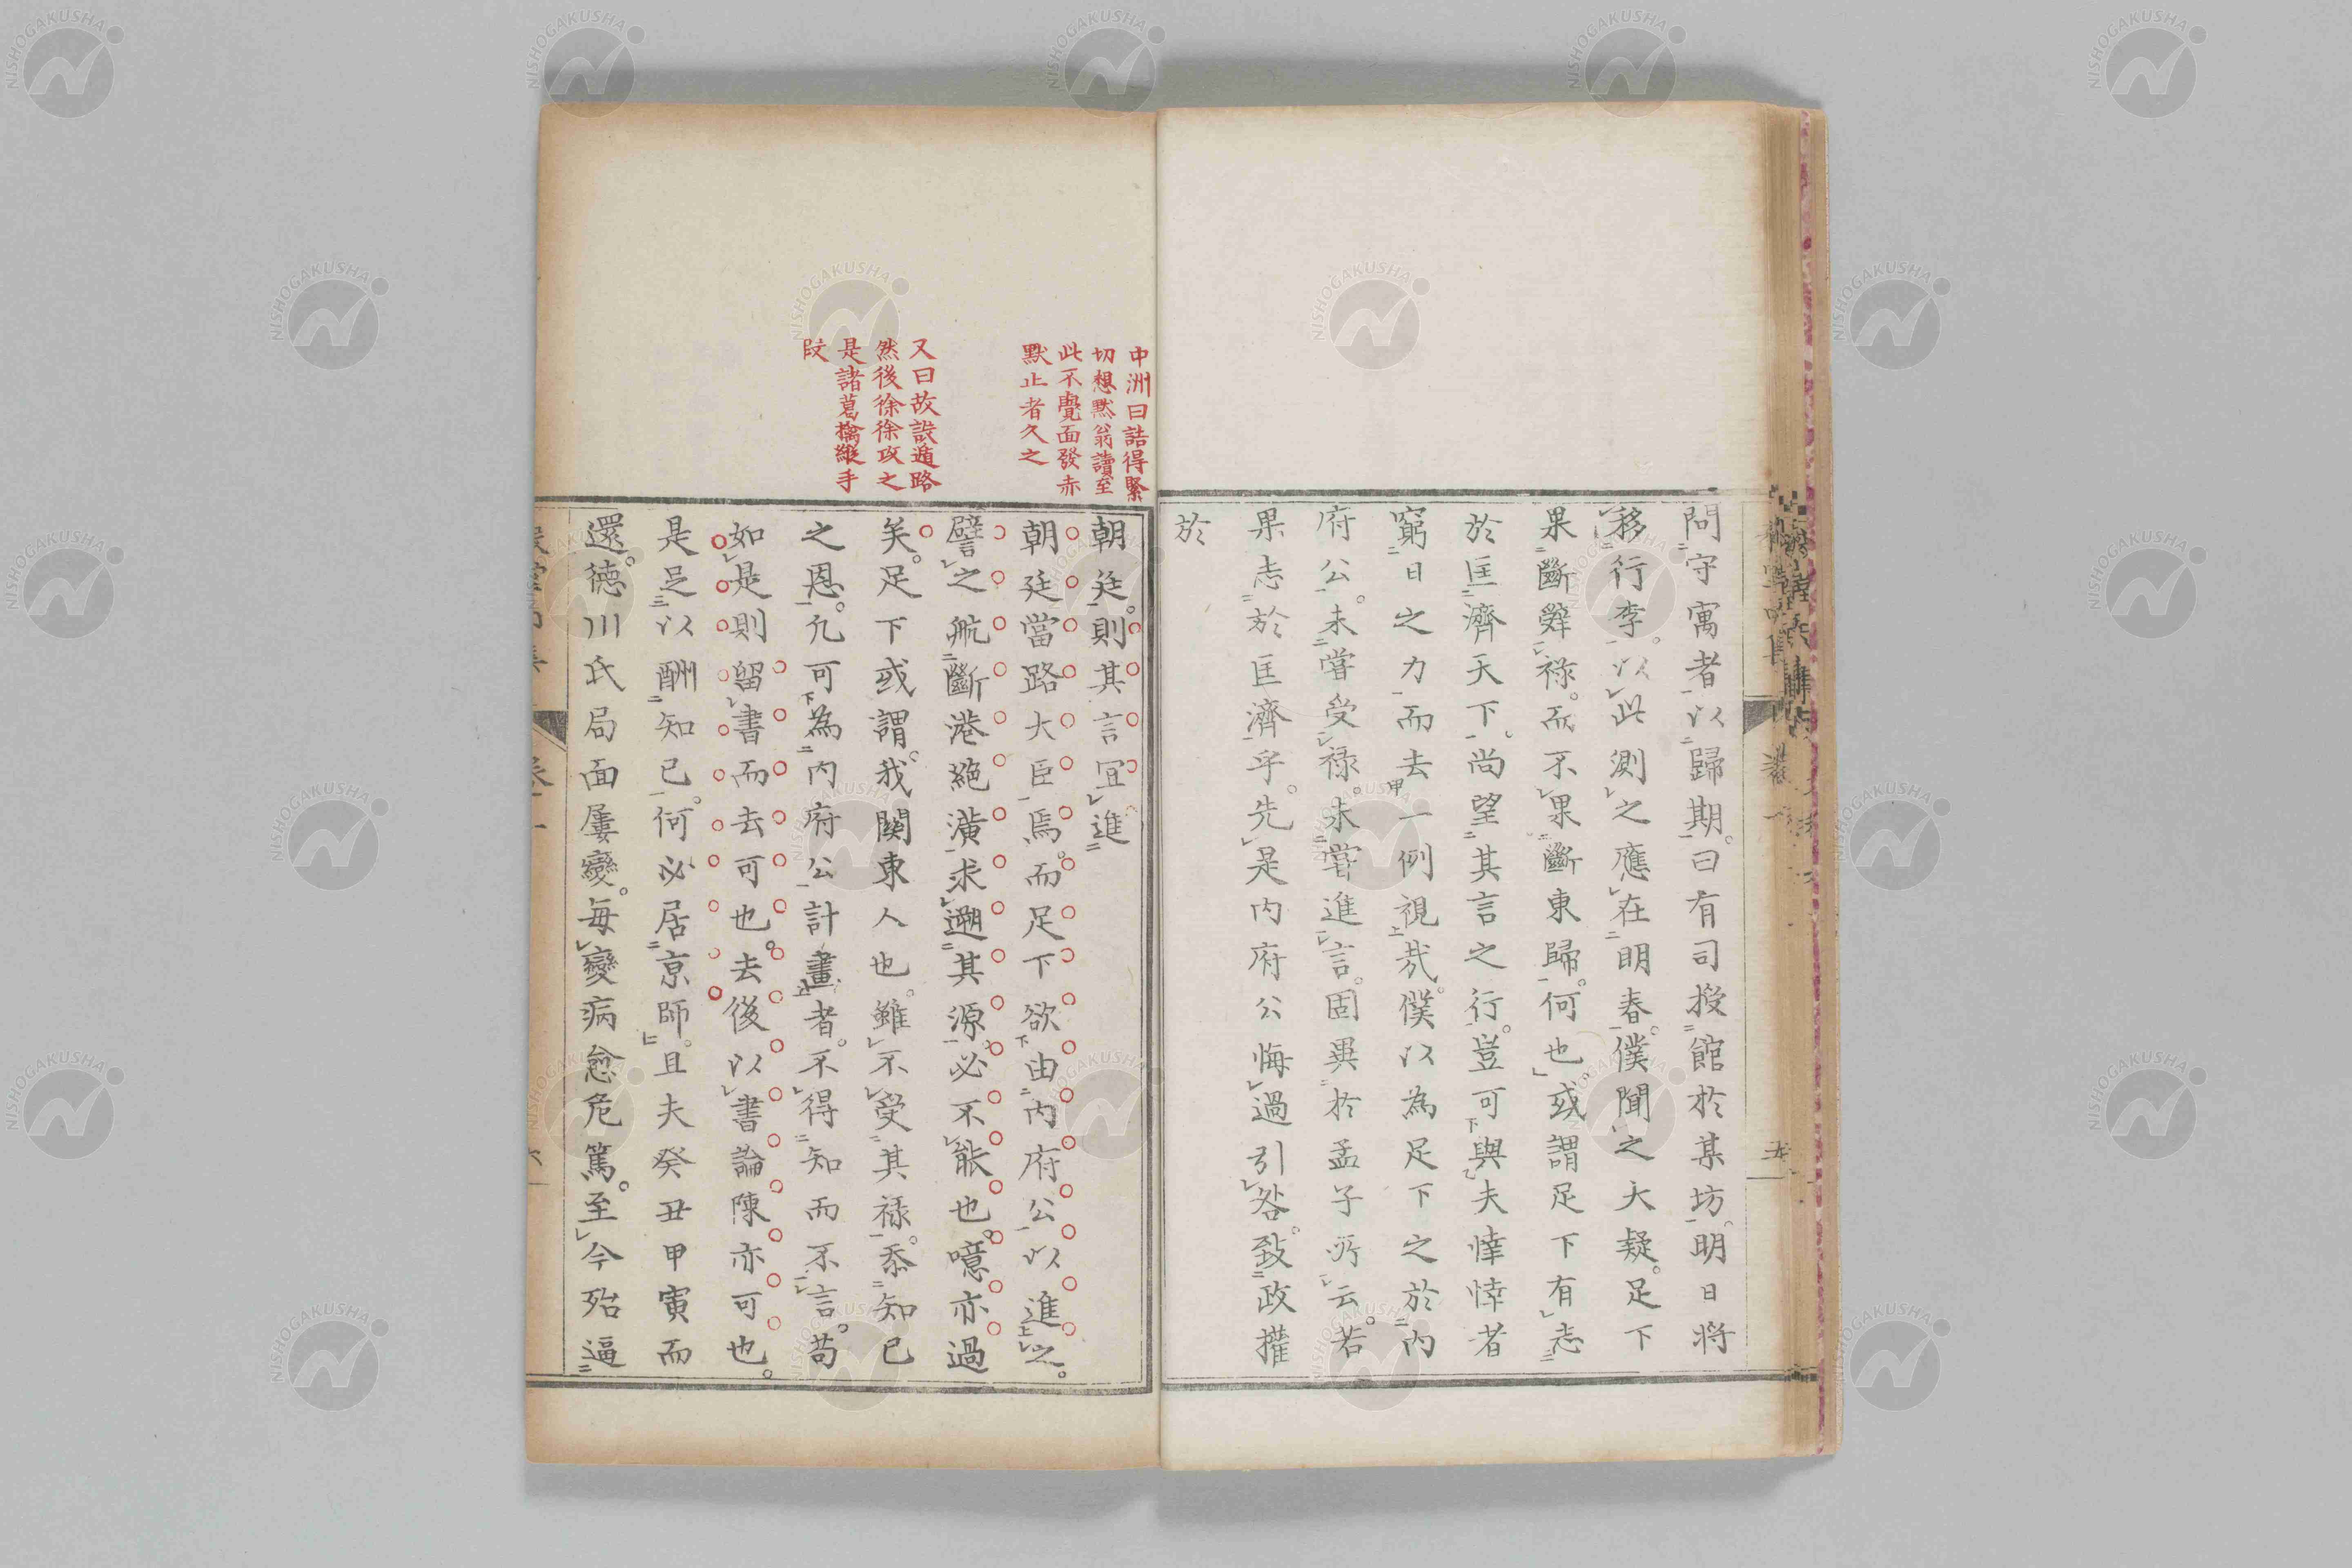 問守寓者以歸期。曰有司授館於某坊。明日將
移行李。以此測之應在明春。僕聞之大疑。足下
果斷辤祿。而不果斷東歸。何也。或謂足下有志
於匡濟天下。尚望其言之行。豈可與夫悻悻者
窮日之力而去一例視哉。僕以為足下之於內
府公。未嘗受祿。未嘗進言。固異於孟子所云。若
果志於匡濟乎。先是內府公悔過引咎。致政權
於
中洲曰詰得緊
切想默翁讀至
此不覺面發赤
默止者久之
又曰故設遁路
然後徐徐攻之
是諸葛擒縱手
段
朝廷。則其言宜進
朝廷當路大臣焉。而足下欲由內府公以進之。
譬之航斷港絕潢求遡其源。必不能也。噫亦過
矣。足下或謂。我關東人也。雖不受其祿。忝知已
之恩。凢可為內府公計畫者。不得知而不言。苟
如是則留書而去可也。去後以書論陳亦可也。
是足以酬知已。何必居京師。且夫癸丑甲寅而
還。德川氏局面屢變。每變病愈危篤。至今殆逼